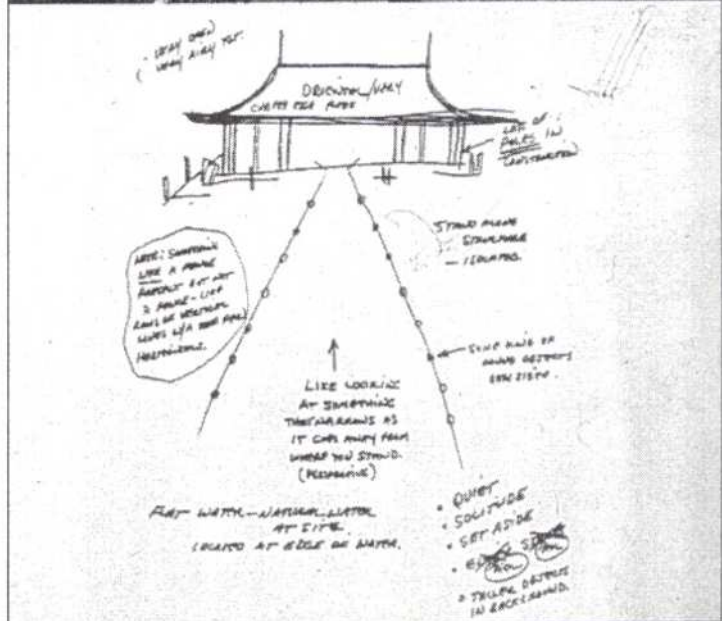 VERY OPEN
VERY AIRY
ORIENTAL/WAY
LOT OF
POLES IN
CONSTRUCTION
STAND ALONE
STRUCTURE
— ISOLATED.
NOTE: SOMETHING
LIKE A FENCE
BUT NOT
A FENCE - LIKE
HORIZONTALS.
SOME KIND OF
ROUND OBJECTS
EACH SIDE.
LIKE LOOKING
AT SOMETHING
THAT NARROWS AS
IT GOES AWAY FROM
WHERE YOU STAND.
(PERSPECTIVE)
FLAT WATER - NATURAL WATER
AT SITE
LOCATED AT EDGE OF WATER.
• QUIET
• SOLITUDE
• SET ASIDE
• TALLER OBJECTS
IN BACKGROUND.